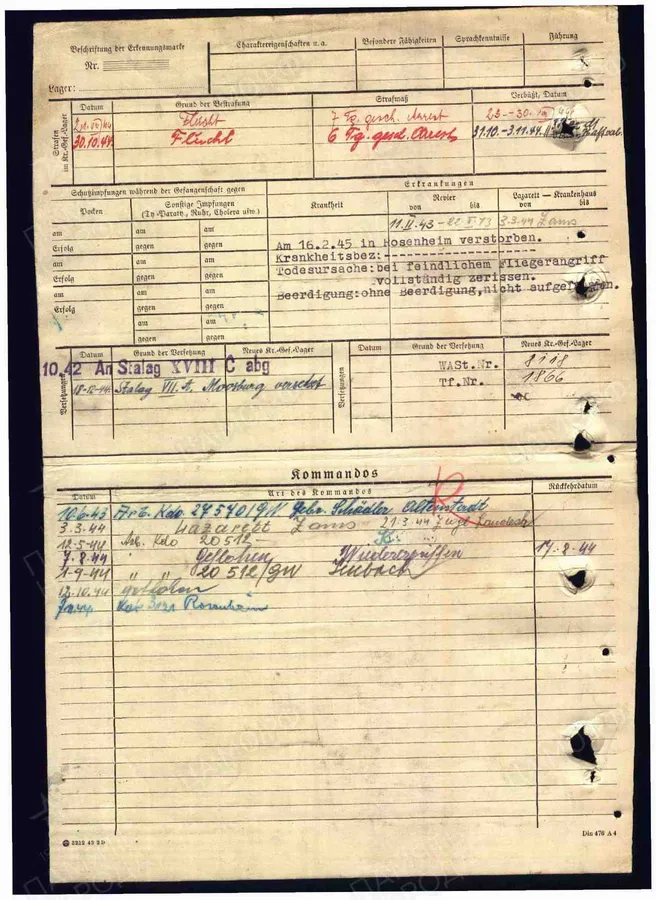 Beschriftung der Erkennungsmarke
Nr.
Lager:
Charaktereigenschaften u.a.
Besondere Fähigkeiten
Sprachkenntnisse
Führung
Strafen im Kr.-Gef.-Lager
Datum
Grund der Bestrafung
Strafmaß
Verbüßt, Datum
Flucht
7 Tg. gesch. Arrest
23.-30.
30.10.44
Flucht
6 Tg. gesch. Arrest
31.10.-3.11.44
Schutzimpfungen während der Gefangenschaft gegen
Erkrankungen
Pocken
Sonstige Impfungen
(Ty-Paraty., Ruhr, Cholera usw.)
Krankheit
Revier
von bis
Lazarett — Krankenhaus
von bis
am am am
3.3.44 Zams
Erfolg gegen gegen
Am 16.2.45 in Rosenheim verstorben.
am am am
Krankheitsbez:
Erfolg gegen gegen
Todesursache: bei feindlichem Fliegerangriff
vollständig zerissen.
am am am
Beerdigung: ohne Beerdigung, nicht aufgefunden.
Erfolg gegen gegen
am am
gegen gegen
Versetzungen
Datum
Grund der Versetzung
Neues Kr.-Gef.-Lager
Versetzungen
Datum
Grund der Versetzung
Neues Kr.-Gef.-Lager
10.42 An Stalag XVIII C abg
WASt.Nr. 8118
18.12.44 Stalag VII. A. Moosburg versetzt
Tf.Nr. 1866
Kommandos
Datum
Art des Kommandos
Rückkehrdatum
10.6.43 Arb. Kdo. 27540/GW Gebr. Schädler Altenstadt
3.3.44 Lazarett Zams 21.3.44
12.5.44 Arb. Kdo 20512
7.8.44 Geflohen Wiederergriffen 17.8.44
1.9.44 " " 20512/GW Imbach
12.10.44 geflohen
Rosenheim
2212 43 2D
Din 476 A 4